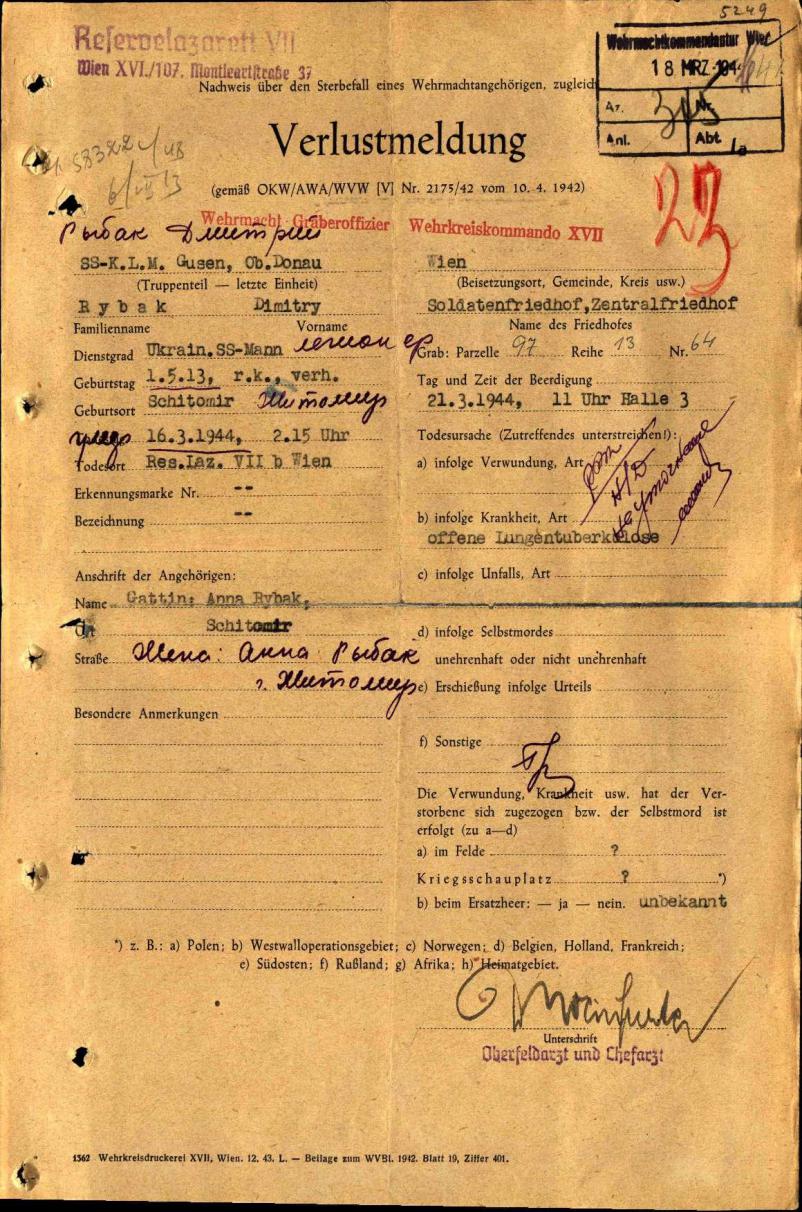 5249
Reservelazarett VII
Wien XVI./107, Montleartstraße 37
Wehrmachtkommandantur Wien
18 MRZ 194
Az.
Nr.
Anl.
Abt. Ia
Nachweis über den Sterbefall eines Wehrmachtangehörigen, zugleich
Verlustmeldung
(gemäß OKW/AWA/WVW [V] Nr. 2175/42 vom 10. 4. 1942)
23
Wehrmacht Gräberoffizier Wehrkreiskommando XVII
Рыбак Дмитрий
SS-K.L.M. Gusen, Ob.Donau
(Truppenteil — letzte Einheit)
Rybak Dimitry
Familienname Vorname
Dienstgrad Ukrain.SS-Mann легионер
Geburtstag 1.5.13, r.k., verh.
Geburtsort Schitomir Житомир
16.3.1944, 2.15 Uhr
Todesort Res.Laz. VII b Wien
Erkennungsmarke Nr. --
Bezeichnung --
Anschrift der Angehörigen:
Name Gattin: Anna Rybak,
Ort Schitomir
Straße Жена: Анна Рыбак
г. Житомир
Besondere Anmerkungen
Wien
(Beisetzungsort, Gemeinde, Kreis usw.)
Soldatenfriedhof,Zentralfriedhof
Name des Friedhofes
Grab: Parzelle 97 Reihe 13 Nr. 64
Tag und Zeit der Beerdigung
21.3.1944, 11 Uhr Halle 3
Todesursache (Zutreffendes unterstreichen!):
a) infolge Verwundung, Art
b) infolge Krankheit, Art
offene Lungentuberkulose
c) infolge Unfalls, Art
d) infolge Selbstmordes
unehrenhaft oder nicht unehrenhaft
e) Erschießung infolge Urteils
f) Sonstige
Die Verwundung, Krankheit usw. hat der Ver-
storbene sich zugezogen bzw. der Selbstmord ist
erfolgt (zu a—d)
a) im Felde ?
Kriegsschauplatz ? *)
b) beim Ersatzheer: — ja — nein. unbekannt
*) z. B.: a) Polen; b) Westwalloperationsgebiet; c) Norwegen; d) Belgien, Holland, Frankreich;
e) Südosten; f) Rußland; g) Afrika; h) Heimatgebiet.
Unterschrift
Oberfeldarzt und Chefarzt
1362 Wehrkreisdruckerei XVII, Wien. 12. 43. L. — Beilage zum WVBl. 1942. Blatt 19, Ziffer 401.